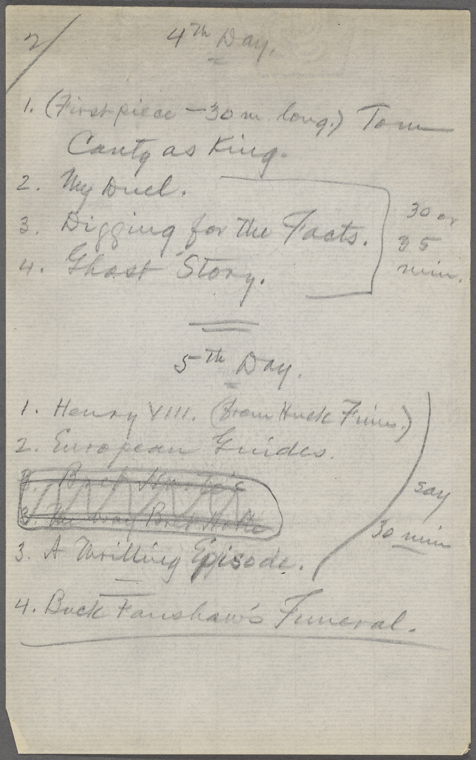 2/
4th Day.
1. (First piece — 30 m. long.) Tom
Canty as King.
2. My Duel.
3. Digging for the Facts.
4. Ghost Story.
30 or
35
min.
5th Day.
1. Henry VIII. (from Huck Finn.)
2. European Guides.
3. A Thrilling Episode.
say
30 min
4. Buck Fanshaw's Funeral.